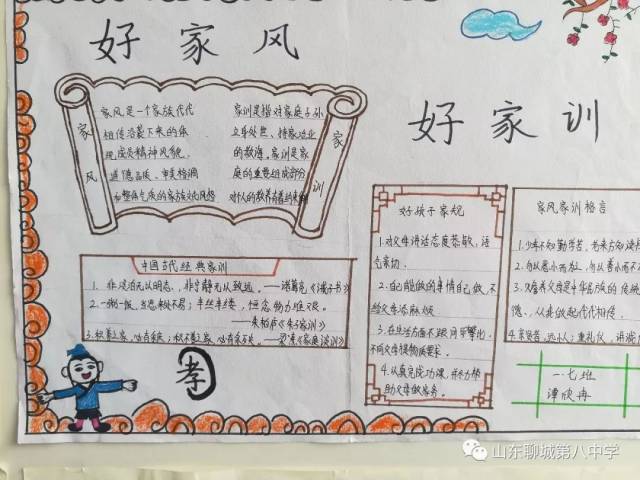 好家风
好家训
家风
家风是一个家族代代
相传沿袭下来的体
现成员精神风貌、
道德品质、审美格调
和整体气质的家族文化风格
家训是指对家庭子孙
立身处世、持家治业
的教诲。家训是家
庭的重要组成部分
家训
中国古代经典家训
1. 非淡泊无以明志,非宁静无以致远。——诸葛亮《诫子书》
2.一粥一饭,当思来处不易;半丝半缕,恒念物力维艰。
——朱柏庐《朱子家训》
孝
好孩子家规
1.对父母讲话态度恭敬,语
气亲切.
2.自己能做的事情自己做,不
给父母添麻烦
3.在生活方面不跟同学攀比,
不同父母提物质要求.
4.认真完成功课,并尽力帮
助父母做家务。
家风家训格言
1.少年不知勤学苦,老来方知读
2.勿以恶小而为之,勿以善小而不
3.
德,从来做起代代相传.
4.亲贤者,远小人;重礼仪,讲
一.七班
谭欣冉
山东聊城第八中学